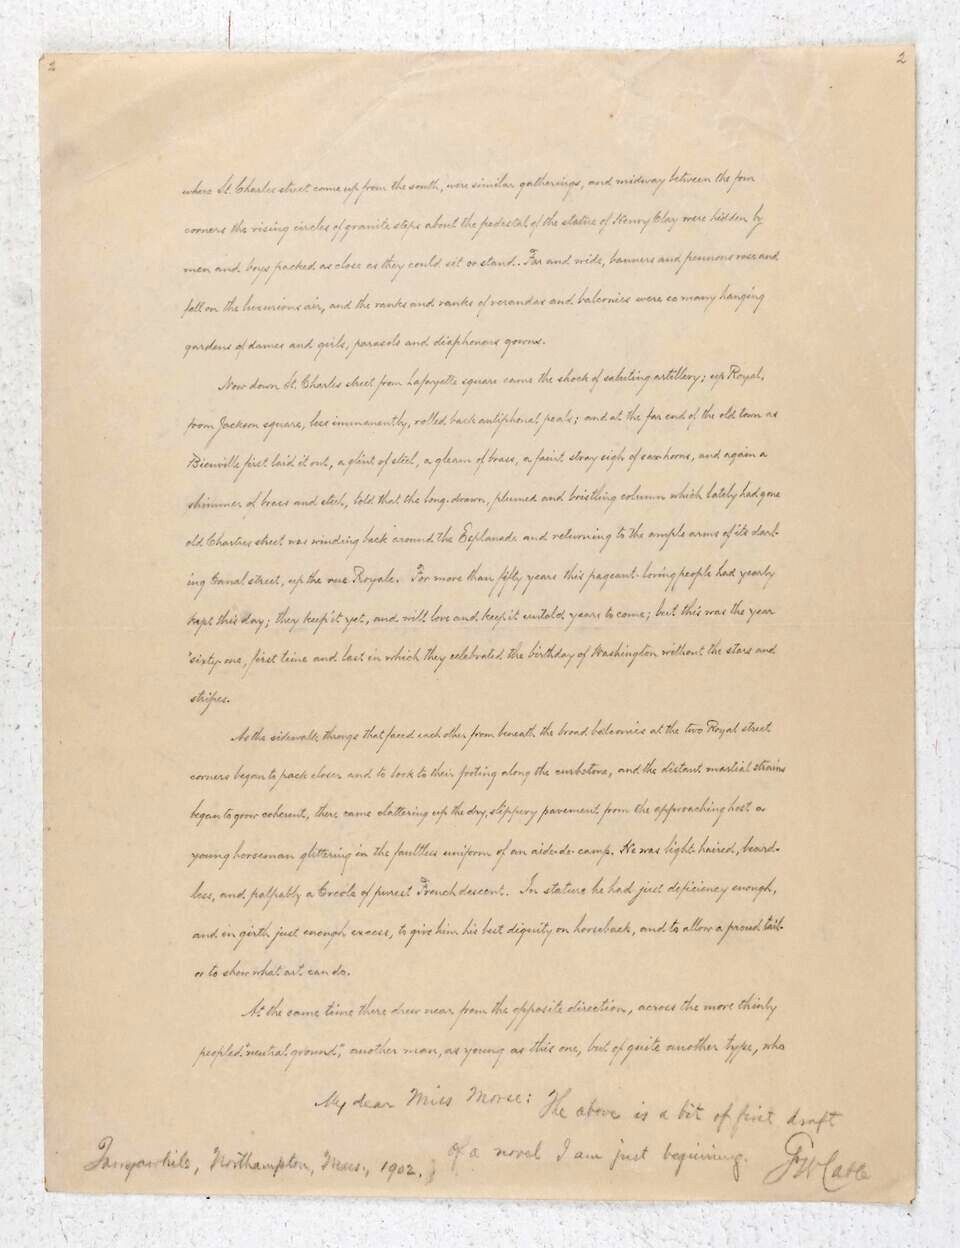 2 2
where St. Charles street came up from the south, were similar gatherings, and midway between the four
corners the rising circles of granite steps about the pedestal of the statue of Henry Clay were hidden by
men and boys packed as close as they could sit or stand. Far and wide, banners and pennons rose and
fell on the luxurious air, and the ranks and ranks of verandas and balconies were so many hanging
gardens of dames and girls, parasols and diaphonous gowns.
Now down St. Charles street from Lafayette square came the shock of saluting artillery; up Royal,
from Jackson square, less immanently, rolled back antiphonal peals; and at the far end of the old town as
Bienville first laid it out, a glint of steel, a gleam of brass, a faint, stray sigh of saxhorns, and again a
shimmer of brass and steel, told that the long-drawn, plumed and bristling column which lately had gone
old Chartres street was winding back around the Esplanade and returning to the ample arms of its darl-
ing Canal street, up the rue Royale. For more than fifty years this pageant-loving people had yearly
kept this day; they keep it yet, and will love and keep it untold years to come; but this was the year
'sixty-one, first time and last in which they celebrated the birthday of Washington without the stars and
stripes.
As the sidewalk throngs that faced each other from beneath the broad balconies at the two Royal street
corners began to pack closer and to look to their footing along the curbstone, and the distant martial strains
began to grow coherent, there came clattering up the dry, slippery pavement from the approaching host a
young horseman glittering in the faultless uniform of an aide-de-camp. He was light-haired, beard-
less, and palpably a Creole of purest French descent. In stature he had just deficiency enough,
and in girth just enough excess, to give him his best dignity on horseback, and to allow a proud tail-
or to show what art can do.
At the same time there drew near from the opposite direction, across the more thinly
peopled "neutral ground", another man, as young as this one, but of quite another type, who
My dear Miss Morse: The above is a bit of first draft
of a novel I am just beginning.
Tarryawhile, Northampton, Mass., 1902.
GW Cable